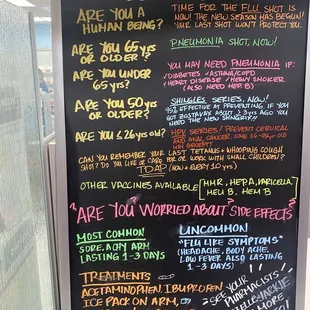 ARE YOU A
HUMAN BEING?
TIME FOR THE FLU SHOT IS
NOW! THE NEW SEASON HAS BEGUN!
YOUR LAST SHOT WON'T PROTECT YOU.
ARE YOU 65yrs
OR OLDER?
PNEUMONIA SHOT, NOW!
ARE YOU UNDER
65yrs?
YOU MAY NEED PNEUMONIA IF:
DIABETES ASTHMA/COPD
HEART DISEASE HEAVY SMOKER
(ALSO NEED HEP B)
ARE YOU 50yrs
OR OLDER?
SHINGLES SERIES, NOW!
EFFECTIVE AT PREVENTING. IF YOU
GOT ZOSTAVAX ABOUT 3 yrs AGO YOU
NEED THE NEW SHINGRIX!
ARE YOU ≤ 26yrs old?
HPV SERIES! PREVENT CERVICAL
CAN YOU REMEMBER YOUR LAST TETANUS + WHOOPING COUGH
SHOT? DO YOU LIVE OR FOR OR WORK WITH SMALL CHILDREN?
TDAP (NOW + EVERY 10 yrs)
OTHER VACCINES AVAILABLE
MMR, HEPA, VARICELLA,
MEU B, HEM B
"ARE YOU WORRIED ABOUT SIDE EFFECTS"
MOST COMMON
SORE, ACHY ARM
LASTING 1-3 DAYS
UNCOMMON
"FLU LIKE SYMPTOMS"
(HEADACHE, BODY ACHE,
LOW FEVER ALSO LASTING
1-3 DAYS)
TREATMENTS
ACETAMINOPHEN, IBUPROFEN,
ICE PACK ON ARM,
SEE YOUR
PHARMACISTS
JACKIE
MORE